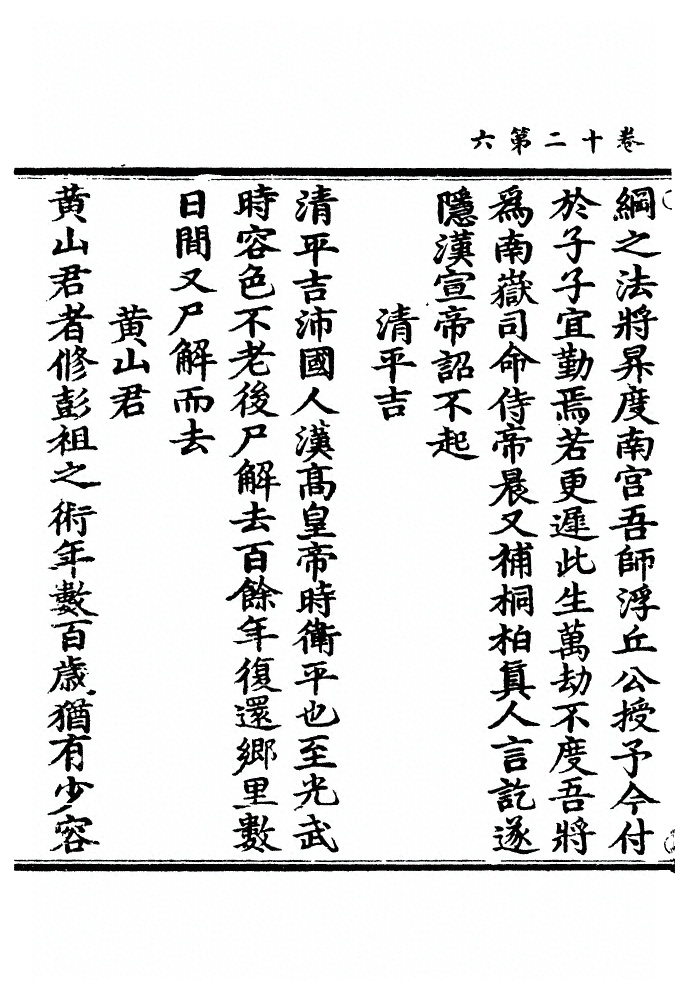 卷十二第六
綱之法將昇度南宮吾師浮丘公授予今付
於子子宜勤焉若更遲此生萬劫不度吾將
爲南嶽司命侍帝晨又補桐柏眞人言訖遂
隱漢宣帝詔不起
清平吉
清平吉沛國人漢髙皇帝時衛平也至光武
時容色不老後尸解去百餘年復還鄉里數
日間又尸解而去
黃山君
黃山君者修彭祖之術年數百歲猶有少容